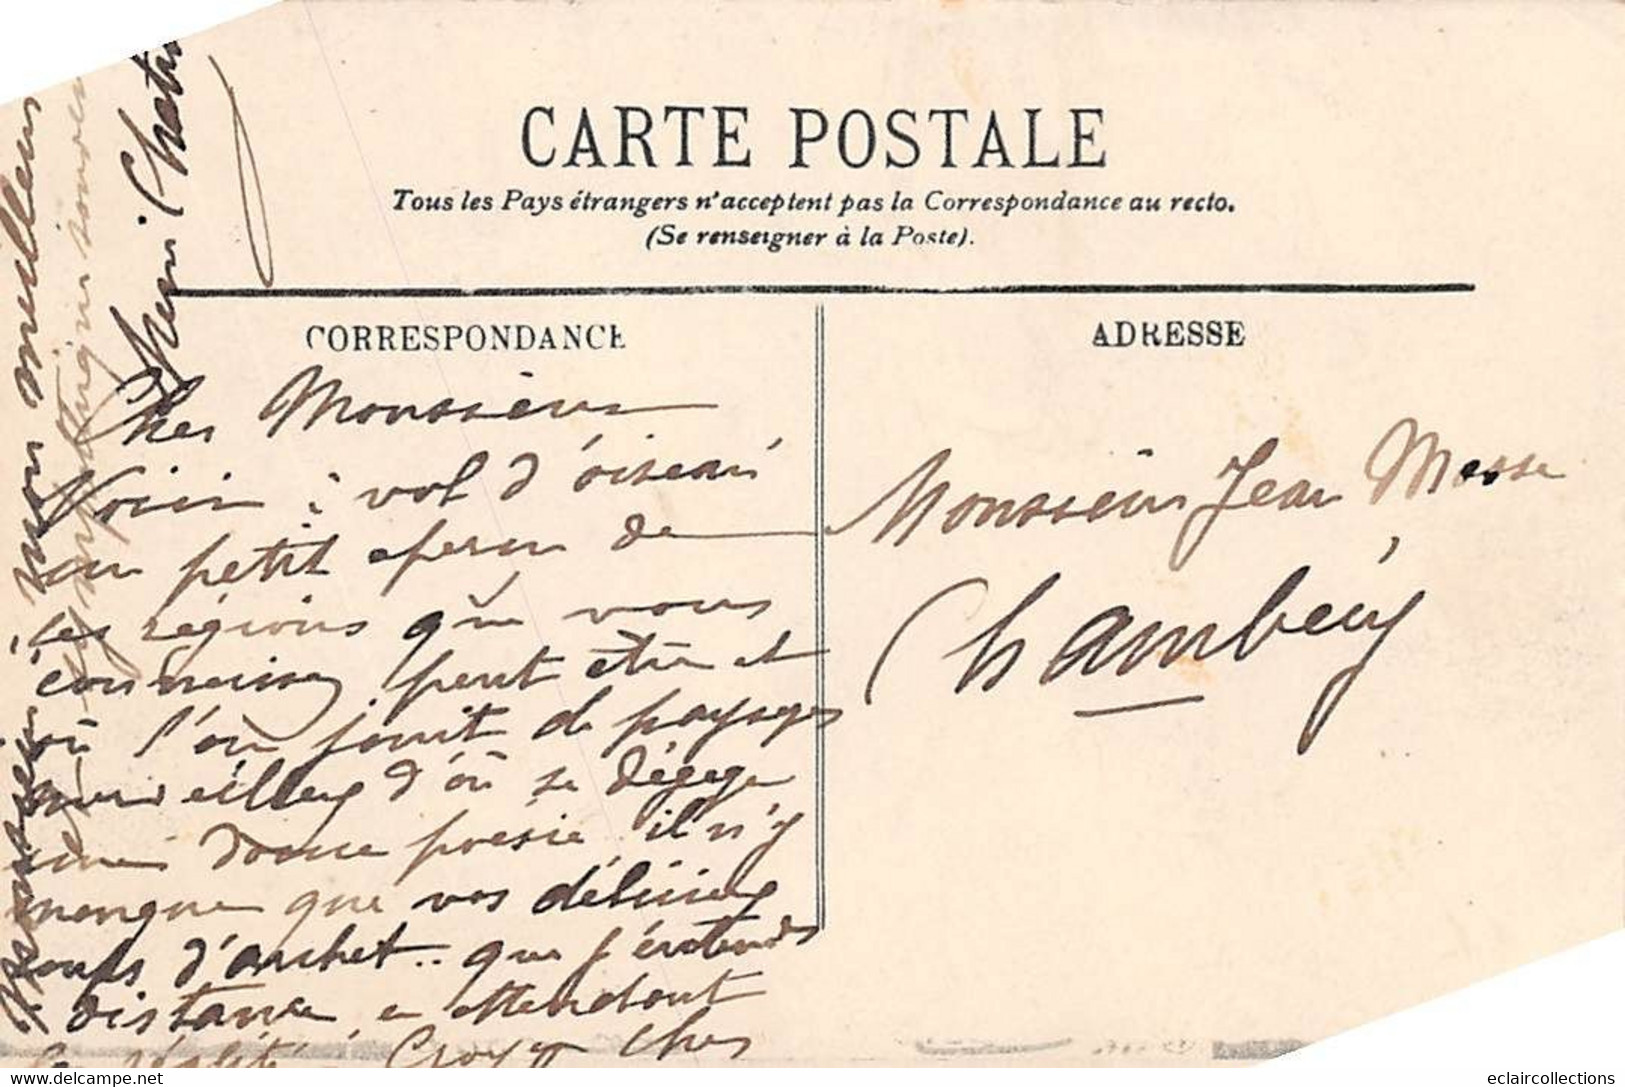 CARTE POSTALE
Tous les Pays étrangers n'acceptent pas la Correspondance au recto.
(Se renseigner à la Poste).
CORRESPONDANCE
ADRESSE
Cher Monsieur
Voici à vol d'oiseau
un petit aperçu de
les régions que vous
connaissez peut être et
où l'on jouit de paysages
merveilleux d'où se dégage
une douce poésie il n'y
manque que vos délicieux
coups d'archet .. que j'entends
distance en attendant
la réalité. Croyez cher
Monsieur à mon meilleur
et sympathique souvenir
Henri
Monsieur Jean Masse
Chambéry
eclaircollections